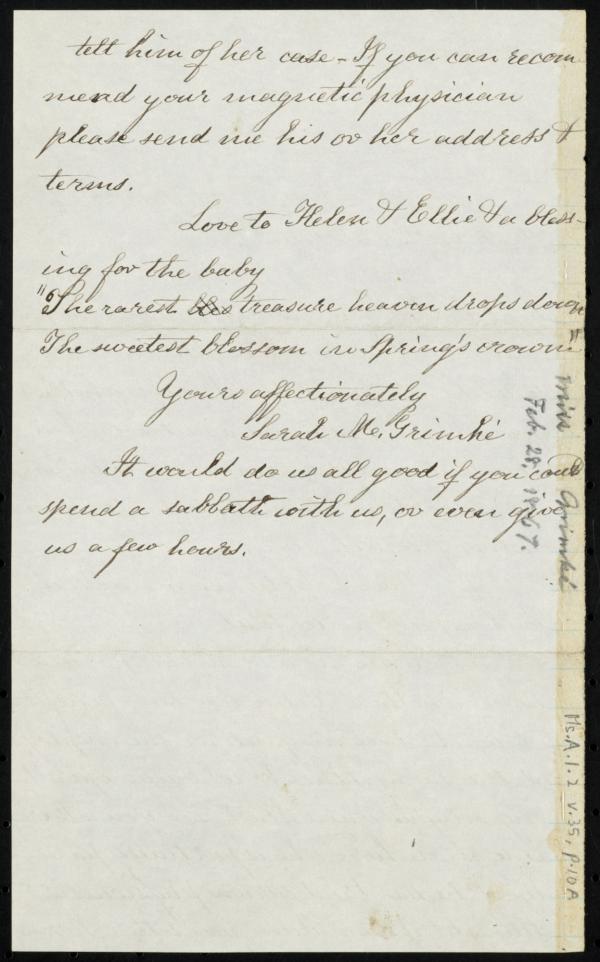 tell him of her case - If you can recom
mend your magnetic physician
please send me his or her address &
terms.
Love to Helen & Ellie & a bless-
ing for the baby
"The rarest treasure heaven drops down
The sweetest blossom in Spring's crown."
Yours affectionately
Sarah M. Grimké
It would do us all good if you could
spend a sabbath with us, or even give
us a few hours.
Miss Grimké
Feb. 28, 1867.
Ms.A.1.2 v.35, p.10A